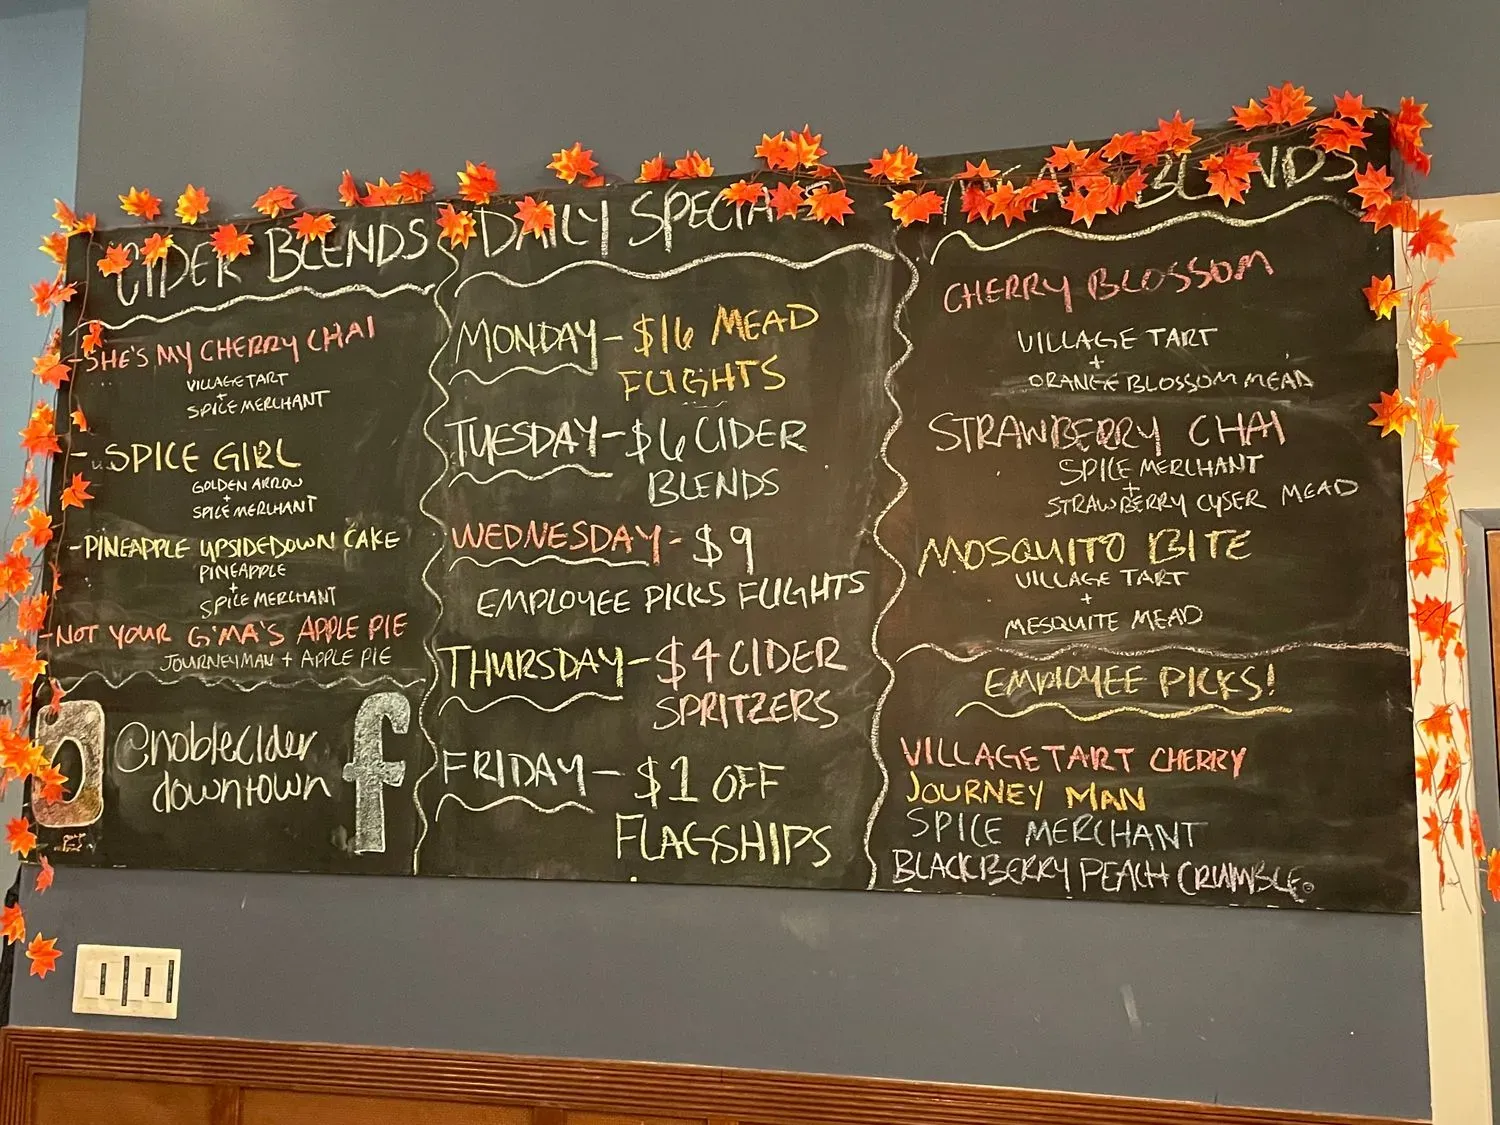 CIDER BLENDS
-SHE'S MY CHERRY CHAI
VILLAGE TART
+
SPICE MERCHANT
- SPICE GIRL
GOLDEN ARROW
+
SPICE MERCHANT
-PINEAPPLE UPSIDEDOWN CAKE
PINEAPPLE
+
SPICE MERCHANT
-NOT YOUR G'MA'S APPLE PIE
JOURNEYMAN + APPLE PIE
@noblecider
downtown
f
DAILY SPECIALS
MONDAY - $16 MEAD
FLIGHTS
TUESDAY - $6 CIDER
BLENDS
WEDNESDAY - $9
EMPLOYEE PICKS FLIGHTS
THURSDAY - $4 CIDER
SPRITZERS
FRIDAY - $1 OFF
FLAGSHIPS
MEAD BLENDS
CHERRY BLOSSOM
VILLAGE TART
+
ORANGE BLOSSOM MEAD
STRAWBERRY CHAI
SPICE MERCHANT
+
STRAWBERRY CYSER MEAD
MOSQUITO BITE
VILLAGE TART
+
MESQUITE MEAD
EMPLOYEE PICKS!
VILLAGE TART CHERRY
JOURNEY MAN
SPICE MERCHANT
BLACKBERRY PEACH CRUMBLE